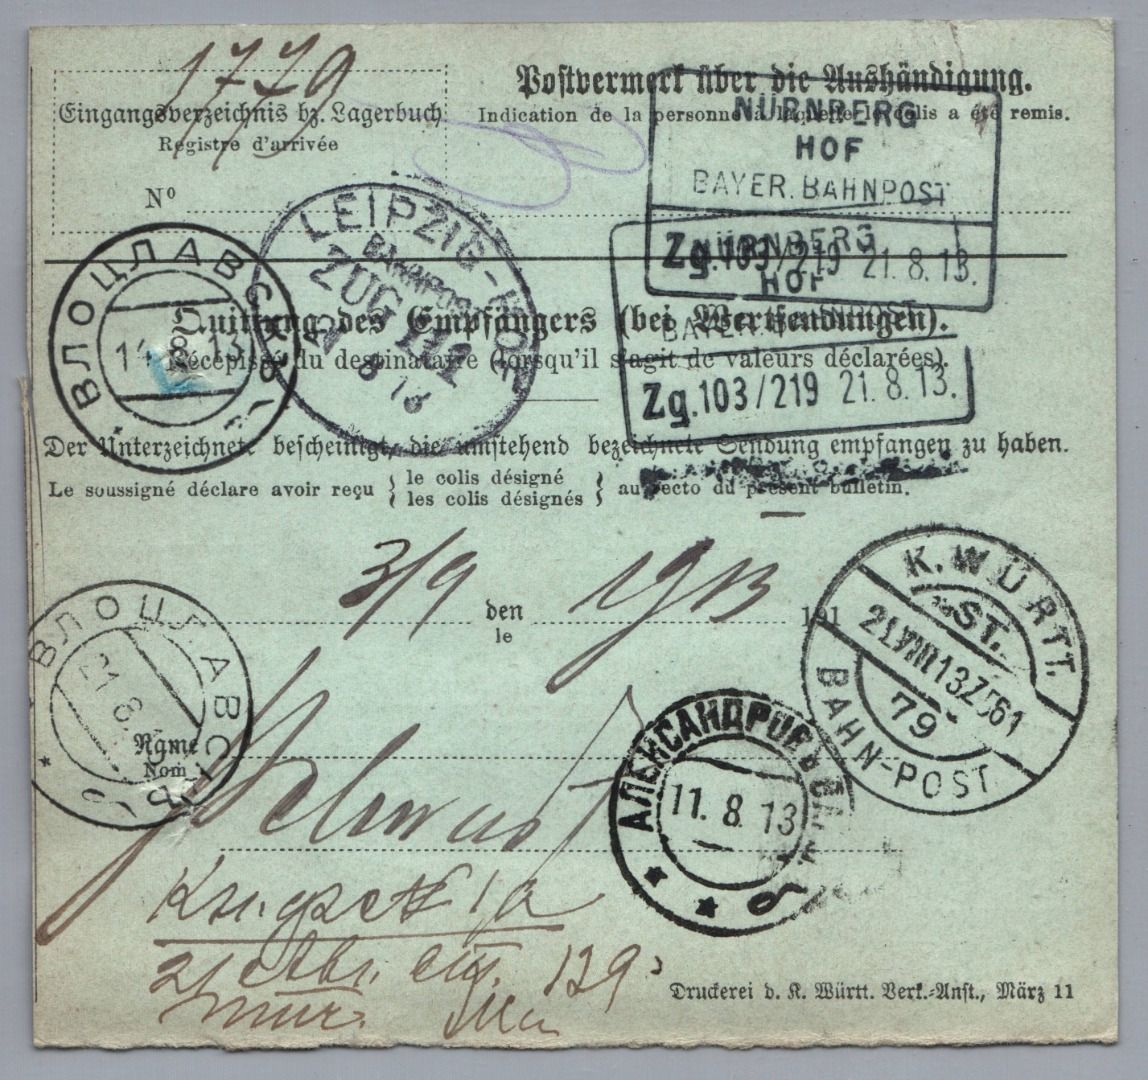 1779
Postvermerk über die Aushändigung.
Eingangsverzeichnis bz. Lagerbuch
Indication de la personne à laquelle le colis a été remis.
Registre d'arrivée
Nº
NÜRNBERG
HOF
BAYER. BAHNPOST
Zg. 103/219 21.8.13.
NÜRNBERG
HOF
BAYER. BAHNPOST
Zg. 103/219 21.8.13.
LEIPZIG-HOF
BAHNPOST
ZUG
8 13
ВЛОЦЛАВСКЪ
8 13
Quittung des Empfängers (bei Wertsendungen).
Récépissé du destinataire (lorsqu'il s'agit de valeurs déclarées).
Der Unterzeichnete bescheinigt, die umstehend bezeichnete Sendung empfangen zu haben.
Le soussigné déclare avoir reçu { le colis désigné
les colis désignés } au recto du présent bulletin.
3/9 den 1913 191
le
K. WÜRTT.
ST.
21.VIII.13.Z.561
79
BAHN-POST.
ВЛОЦЛАВСКЪ
Name
Nom
АЛЕКСАНДРОВ
11. 8. 13
139
Druckerei d. K. Württ. Verk.-Anst., März 11